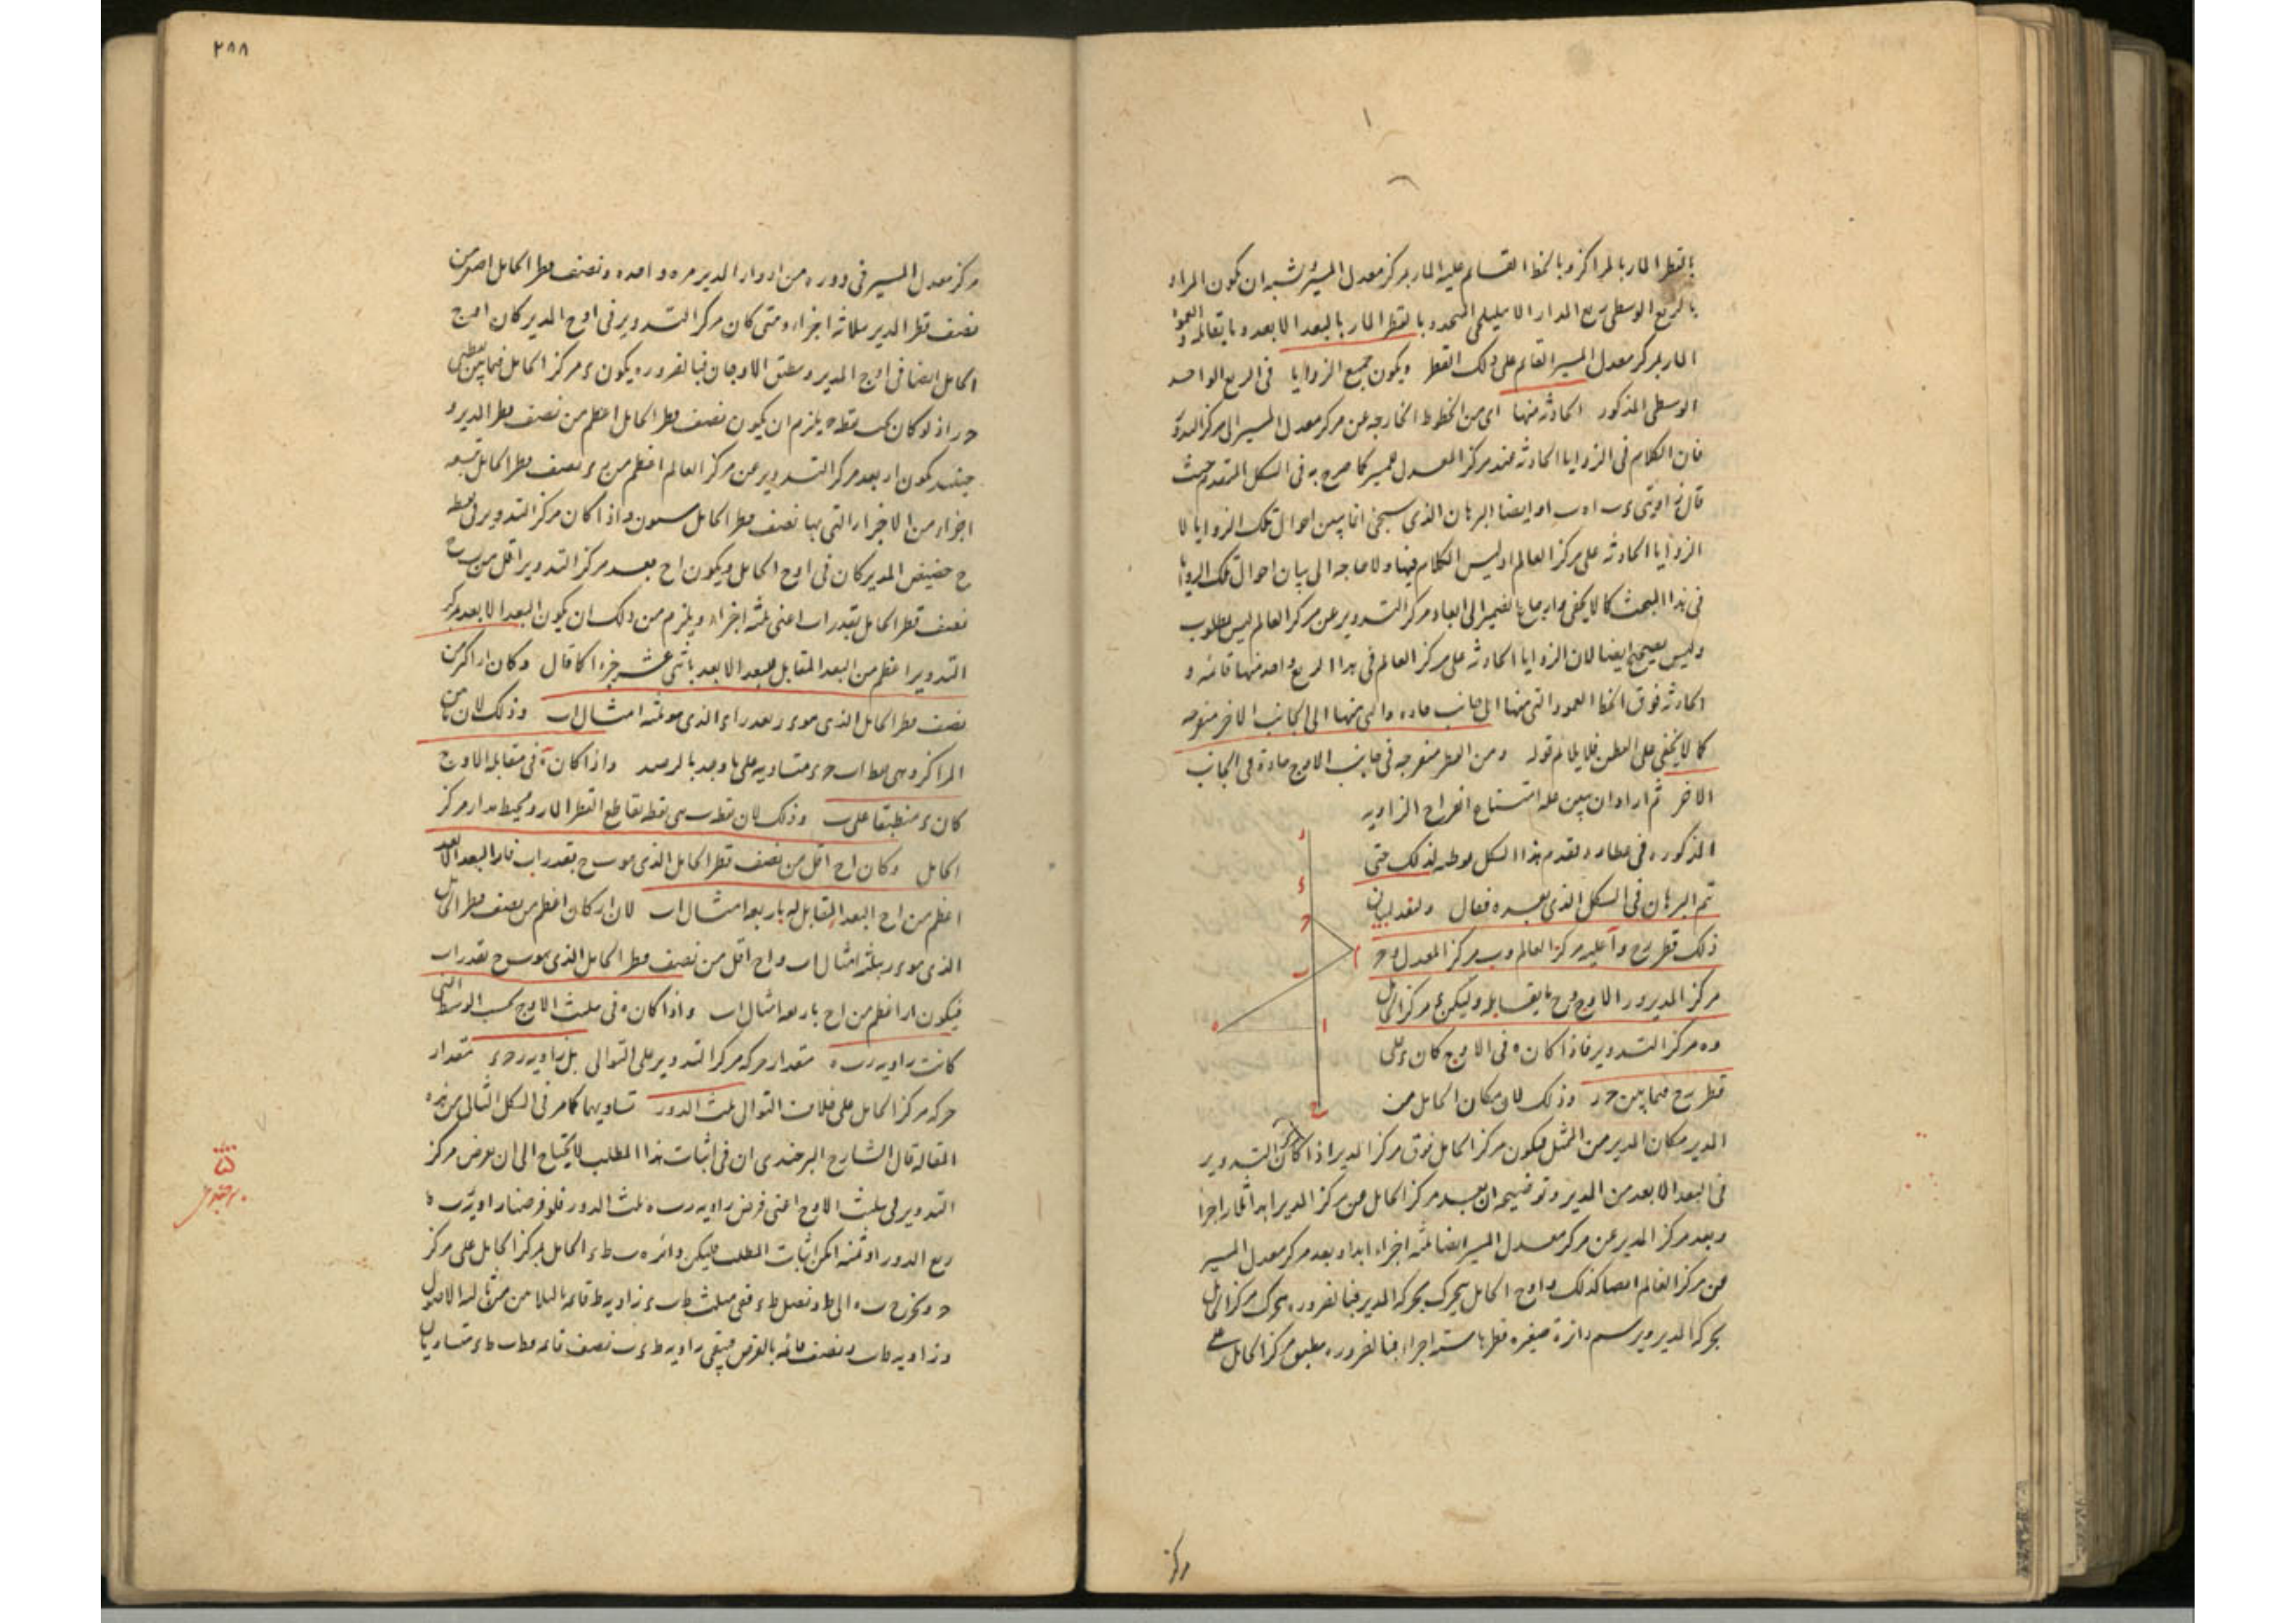 بالقطر المار بالمراكز وبالخط القائم عليه المار بمركز معدل المسير يشبه ان يكون المراد
بالربع الوسطى ربع المدار الاهليلجى المحدود بالقطر المار بالبعد الابعد وما يقابله والعمود
المار بمركز معدل المسير القائم على ذلك القطر ويكون جميع الزوايا فى الربع الواحد
الوسطى المذكور الحادثة منها اى من الخطوط الخارجه عن مركز معدل المسير الى مركز التدوير
فان الكلام فى الزوايا الحادثه عند مركز المعدل للمسير كما صرح به فى الشكل المتقدم حيث
قال زاويتى وايضا البرهان الذى سيجئ انما يبين احوال تلك الزوايا لا
الزوايا الحادثه على مركز العالم اذ ليس الكلام فيها ولا حاجه الى بيان احوال تلك الزوايا
فى هذا المبحث كما لا يخفى وارجاع الضمير الى ابعاد مركز التدوير عن مركز العالم ليس بمطلوب
وليس بصحيح ايضا لان الزوايا الحادثه على مركز العالم فى هذا الربع واحد منها قائمه و
الحادثه فوق الخط العمود التى منها الى جانب حاده والتى منها الى الجانب الاخر منفرجه
كما لا يخفى على الفطن فلا يلائم قوله ومن القطر منفرجه فى جانب الاوج حادة فى الجانب
الاخر ثم اراد ان يبين علة امتناع انفراج الزاويه
المذكوره فى عطارد وتقدم هذا الشكل توطئه لذلك حتى
تم البرهان فى الشكل الذى بعده فقال ولنعد لبيان
ذلك قطر رح و ا عليه مركز العالم و ب مركز المعدل و ح
مركز المدير و ر الاوج و ح ما يقابله وليكن ء مركز الحامل
و ه مركز التدوير فاذا كان ه فى الاوج كان ء على
قطر رح فيما بين ح ر وذلك لان مكان الحامل من
المدير مكان المدير من الممثل فيكون مركز الحامل فوق مركز المدير اذا كان مركز التدوير
فى البعد الابعد من المدير وتوضيحه ان بعد مركز الحامل من مركز المدير ابدا ثلثه اجزا
وبعد مركز المدير عن مركز معدل المسير ايضا ثلثه اجزاء ابدا وبعد مركز معدل المسير
عن مركز العالم ايضا كذلك واوج الحامل يتحرك بحركه المدير فبالضروره يتحرك مركز الحامل
بحركه المدير ويرسم دائرة صغيره قطرها سته اجزاء فبالضروره ينطبق مركز الحامل على
مركز
ر
ء
ح
ا
ب
ه
ا
ح
٢٨٨
مركز معدل المسير فى دوره من ادوار المدير مره واحده ونصف قطر الحامل اصغر من
نصف قطر المدير بثلاثه اجزاء ومتى كان مركز التدوير فى اوج المدير كان اوج
الحامل ايضا فى اوج المدير وينطبق الاوجان فبالضروره يكون ء مركز الحامل فيما بين نقطتى
ح ر اذ لو كان تحت نقطه ح يلزم ان يكون نصف قطر الحامل اعظم من نصف قطر المدير و
حينئذ يكون ا ر بعد مركز التدوير عن مركز العالم اعظم من ر ء نصف قطر الحامل بتسعه
اجزاء من الاجزاء التى بها نصف قطر الحامل ستون واذا كان مركز التدوير فى نقطه
ح حضيض المدير كان فى اوج الحامل ويكون ا ح بعد مركز التدوير اقل من ب ح
نصف قطر الحامل بقدر ا ب اعنى ثلثه اجزاء ويلزم من ذلك ان يكون البعد الابعد لمركز
التدوير اعظم من البعد المقابل للبعد الابعد باثنى عشر جزءا كما قال وكان ا ر اكثر من
نصف قطر الحامل الذى هو ء ر بقدر ا ء الذى هو ثلثه امثال ا ب وذلك لان ما بين
المراكز وهى خطا ب ح ء متساويه على ما وجد بالرصد واذا كان ه فى مقابلة الاوج
كان ء منطبقا على ب وذلك لان نقطه ب هى نقطه تقاطع القطر المار ومحيط مدار مركز
الحامل وكان ا ح اقل من نصف قطر الحامل الذى هو ب ح بقدر ا ب فار البعد الابعد
اعظم من ا ح البعد المقابل له باربعه امثال ا ب لان ا ر كان اعظم من نصف قطر الحامل
الذى هو ء ر بثلثه امثال ا ب و ا ح اقل من نصف قطر الحامل الذى هو ب ح بقدر ا ب
فيكون ا ر اعظم من ا ح باربعه امثال ا ب واذا كان ه فى مثلث الاوج بحسب الوسط
كانت زاويه ر ب ه مقدار حركه مركز التدوير على التوالى بل زاويه ر ح ء مقدار
حركه مركز الحامل على خلاف التوالى ثلث الدور تساويهما كما مر فى الشكل الثانى من هذه
المقاله قال الشارح البرجندى ان فى اثبات هذا المطلب لا يحتاج الى ان يعرض مركز
التدوير فى مثلث الاوج اعنى فرض زاويه ر ب ه ثلث الدور فلو فرضنا زاويه ر ب ه
ربع الدور او ثمنه امكن اثبات المطلب فليكن دائره ب ط ء الحامل لمركز الحامل على مركز
ح ونخرج ب ه الى ط ونصل ط ء ففى مثلث ط ب ء زاويه ط قائمه بالثلاثين من ثالثه الاصول
وزاويه ط ب ء نصف قائمه بالفرض فيبقى زاويه ط ء ب نصف قائمه فط ب ط ء متساويان